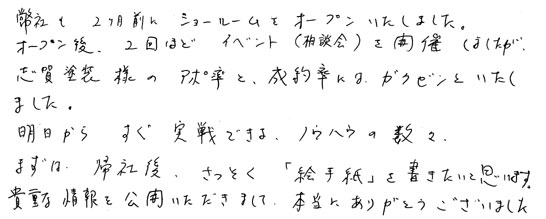 弊社も2ヶ月前にショールームをオープンいたしました。
オープン後、2回ほどイベント(相談会)を開催しましたが、
志賀塗装様のアポ率と、成約率にはガクゼンといたし
ました。
明日からすぐ実戦できる、ノウハウの数々、
まずは、帰社後、さっそく「絵手紙」を書きたいと思います。
貴重な情報を公開いただきまして、本当にありがとうございました